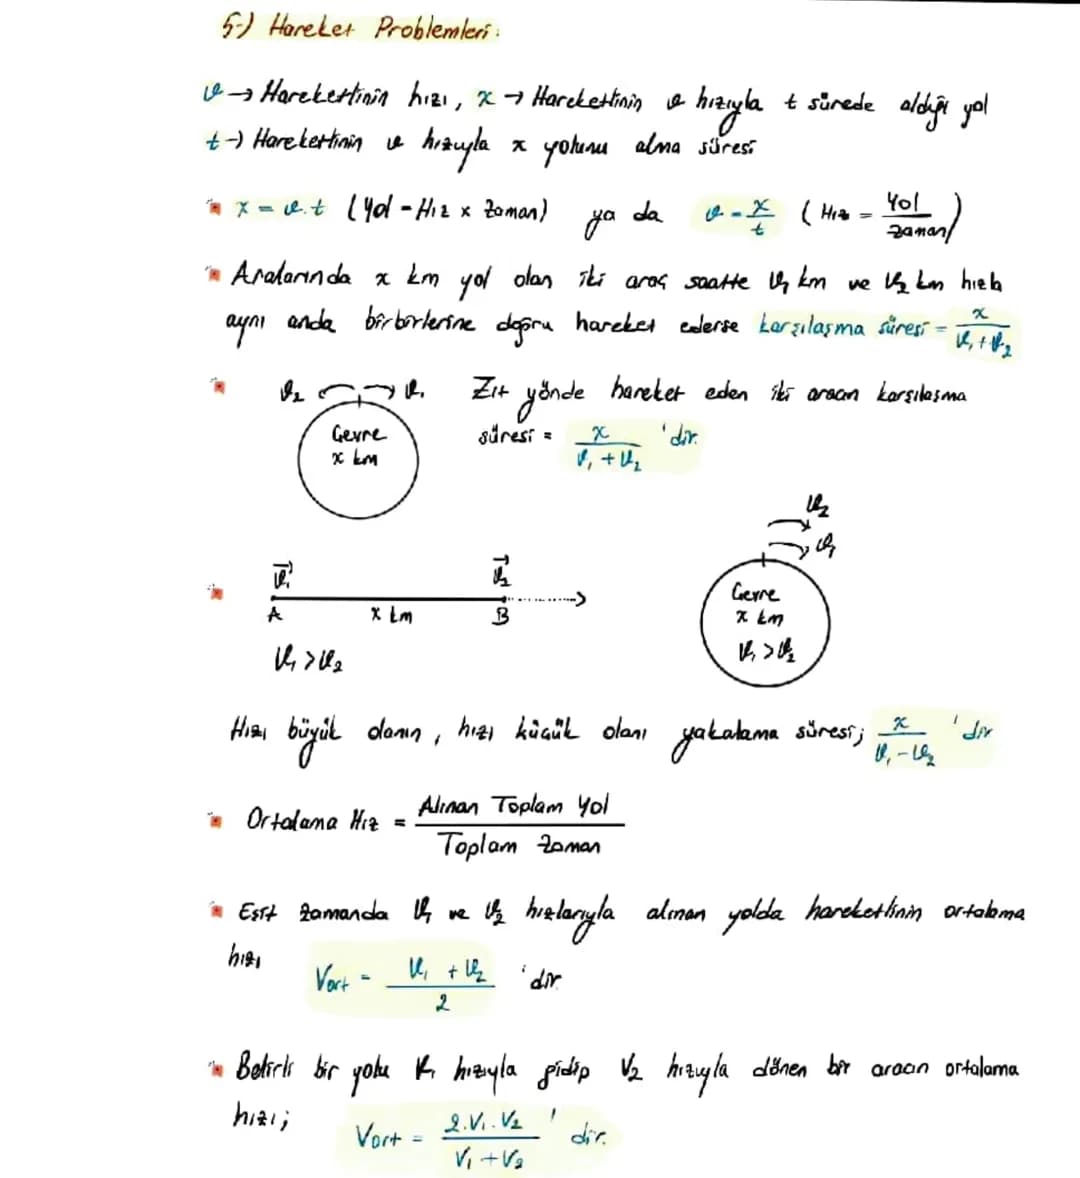 5-) Hareket Problemleri:
v → Hareketlinin hızı, x → Hareketlinin v hızıyla t sürede aldığı yol
t → Hareketlinin v hızıyla x yolunu alma süresi
x = v.t (Yol = Hız x Zaman) ya da v = x/t (Hız = Yol/Zaman)
Aralarında x km yol olan iki araç saatte V₁ km ve V₂ km hızla
aynı anda birbirlerine doğru hareket ederse karşılaşma süresi = x/(V₁+V₂)
V₂ V₁ Zıt yönde hareket eden iki aracın karşılaşma
Çevre x km
süresi = x/(V₁+V₂) 'dir.
V₂
V₁
V₁ V₂
A x km B
V₁>V₂
Çevre
x km
V₁>V₂
Hızı büyük olanın, hızı küçük olanı yakalama süresi; x/(V₁-V₂) 'dir
Ortalama Hız = Alınan Toplam Yol / Toplam Zaman
Eşit zamanda V₁ ve V₂ hızlarıyla alınan yolda hareketlinin ortalama
hızı Vort = (V₁+V₂)/2 'dir
Belirli bir yolu V₁ hızıyla gidip V₂ hızıyla dönen bir aracın ortalama
hızı; Vort = 2.V₁.V₂/(V₁+V₂) 'dir.